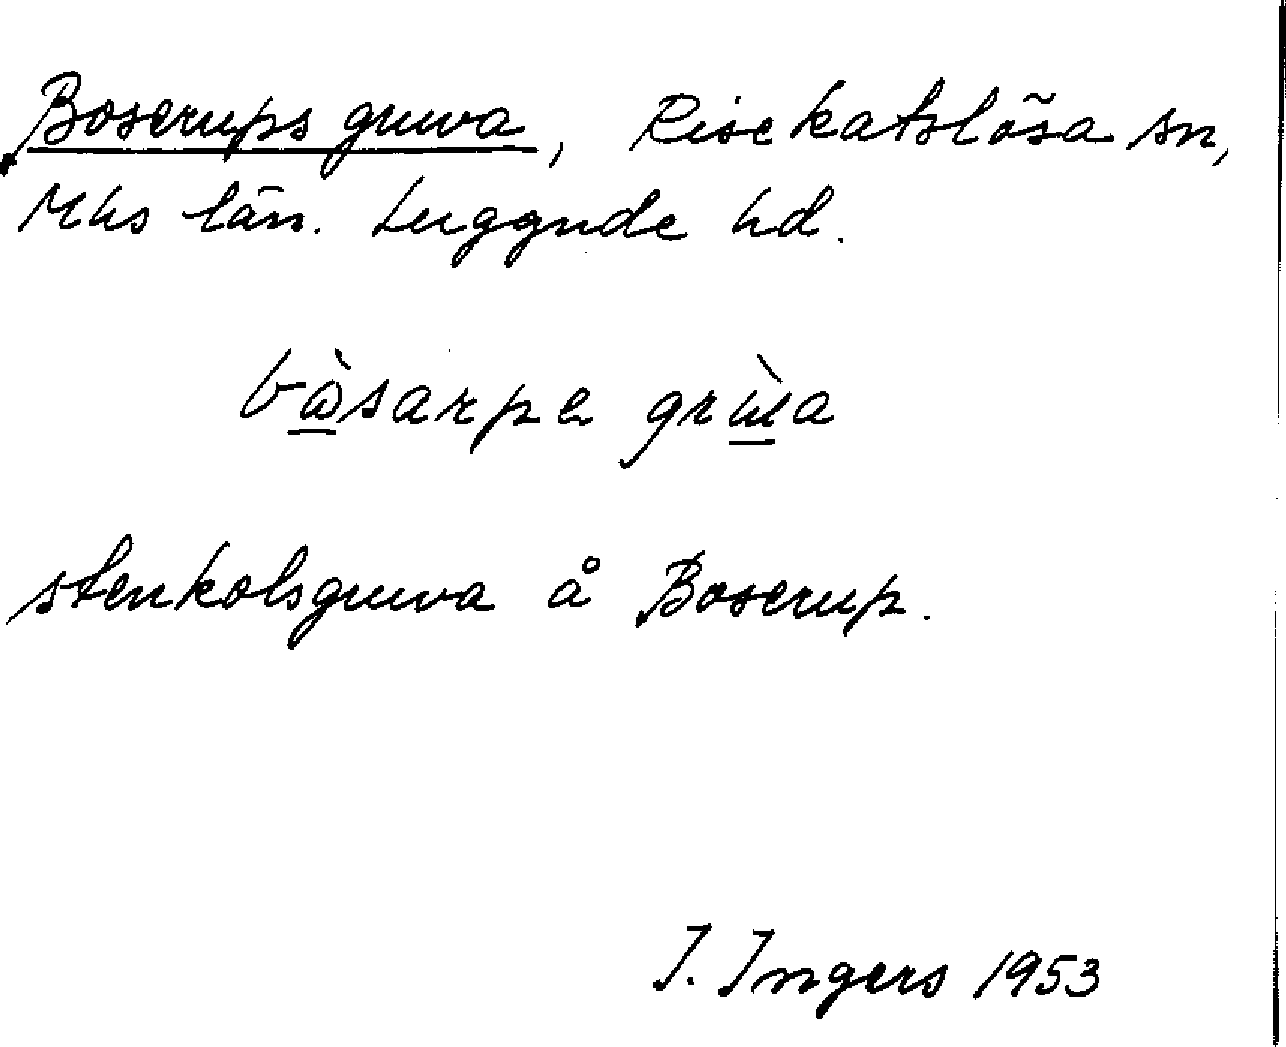 Boserups gruva, Risekatslösa sn,
Mhs län. Luggude hd.
bɷ̠̀sarpa grɯ̠̀a
stenkolsgruva å Boserup.
I. Ingers 1953